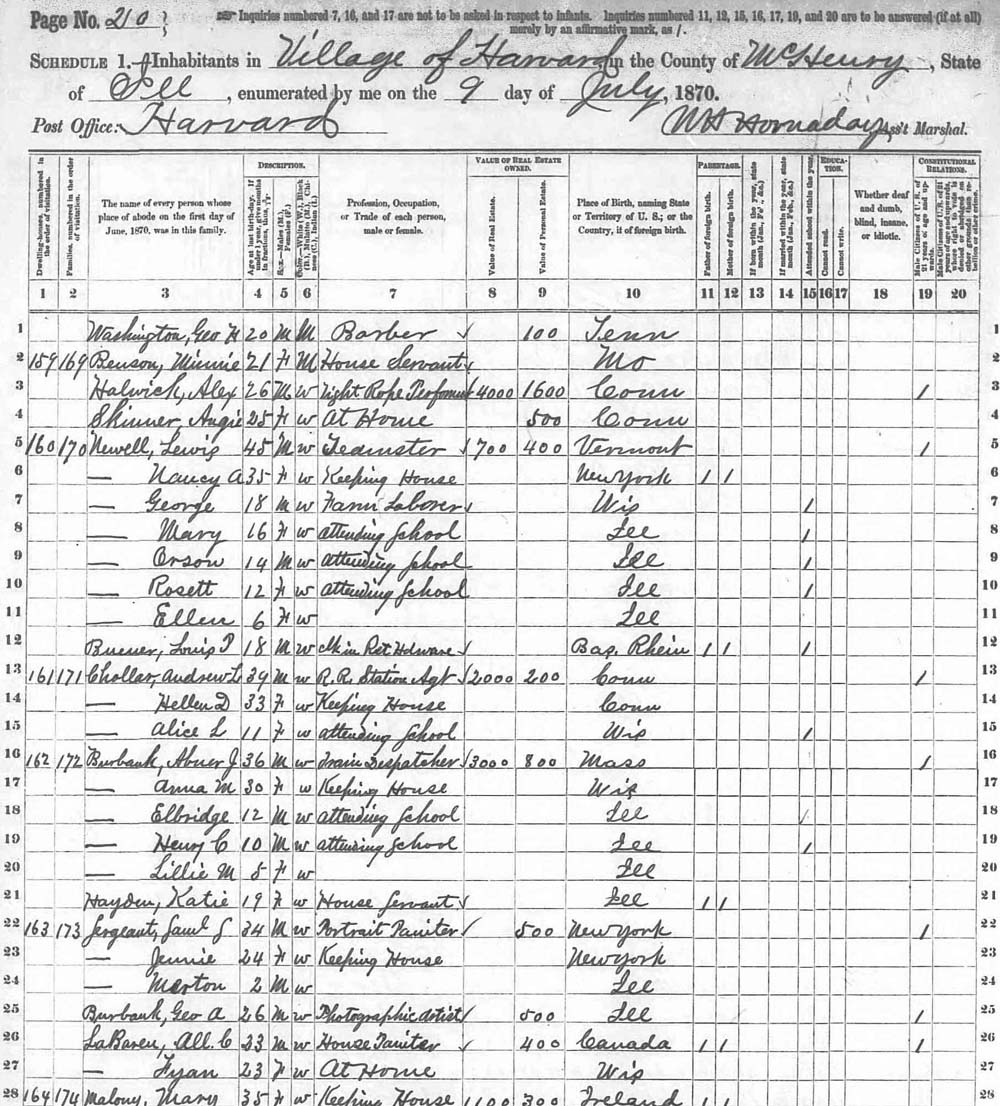 Page No. 210
☞ Inquiries numbered 7, 16, and 17 are not to be asked in respect to infants. Inquiries numbered 11, 12, 15, 16, 17, 19, and 20 are to be answered (if at all)
merely by an affirmative mark, as /.
SCHEDULE 1.—Inhabitants in Village of Harvard, in the County of McHenry, State
of Ill, enumerated by me on the 9 day of July, 1870.
Post Office: Harvard WH Hornaday, Ass't Marshal.
DESCRIPTION. VALUE OF REAL ESTATE OWNED. PARENTAGE. EDUCATION. CONSTITUTIONAL RELATIONS.
Dwelling-houses, numbered in the order of visitation.
Families, numbered in the order of visitation.
The name of every person whose place of abode on the first day of June, 1870, was in this family.
Age at last birth-day. If under 1 year, give months in fractions, thus
Sex.—Males (M.), Females (F.)
Color.—White (W.), Black (B.), Mulatto (M.), Chinese (C.), Indian (I.)
Profession, Occupation, or Trade of each person, male or female.
Value of Real Estate.
Value of Personal Estate.
Place of Birth, naming State or Territory of U. S.; or the Country, if of foreign birth.
Father of foreign birth.
Mother of foreign birth.
If born within the year, state month (Jan., Feb., &c.)
If married within the year, state month (Jan., Feb., &c.)
Attended school within the year.
Cannot read.
Cannot write.
Whether deaf and dumb, blind, insane, or idiotic.
Male Citizens of U. S. of 21 years of age and upwards.
Male Citizens of U. S. of 21 years of age and upwards, where right to vote is denied or abridged on other grounds than rebellion or other crime.
1 2 3 4 5 6 7 8 9 10 11 12 13 14 15 16 17 18 19 20
1 Washington, Geo H 20 M M Barber 100 Tenn 1
2 159 169 Benson, Minnie 21 F M House Servant Mo 2
3 Halwick, Alex 26 M W Tight Rope Performer 4000 1600 Conn / 3
4 Skinner, Angie 25 F W At Home 500 Conn 4
5 160 170 Newell, Lewis 45 M W Teamster 700 400 Vermont / 5
6 — Nancy A 35 F W Keeping House New York / / 6
7 — George 18 M W Farm Laborer Wis / 7
8 — Mary 16 F W attending School Ill / 8
9 — Orson 14 M W attending School Ill / 9
10 — Rosett 12 F W attending School Ill / 10
11 — Ellen 6 F W Ill 11
12 Louis 18 M W Clk in Ret Hdware Bas. Rhein / / / 12
13 161 171 Chollar, Andrew L 39 M W R. R. Station Agt 2000 200 Conn / 13
14 — Hellen D 33 F W Keeping House Conn 14
15 — Alice L 11 F W attending School Wis / 15
16 162 172 Burbank, Abner J 36 M W Train Despatcher 3000 800 Mass / 16
17 — Anna M 30 F W Keeping House Wis 17
18 — Elbridge 12 M W attending School Ill / 18
19 — Henry C 10 M W attending School Ill / 19
20 — Lillie M 5 F W Ill 20
21 Hayden, Katie 19 F W House Servant Ill / / 21
22 163 173 Sergeant, Saml G 34 M W Portrait Painter 500 New York / 22
23 — Jennie 24 F W Keeping House New York 23
24 — Merton 2 M W Ill 24
25 Burbank, Geo A 26 M W Photographic Artist 500 Ill / 25
26 LaBaren, All. C 23 M W House Painter 400 Canada / / / 26
27 — 23 F W At Home Wis 27
28 164 174 Malony, Mary 35 F W Keeping House 1100 300 Ireland / / 28